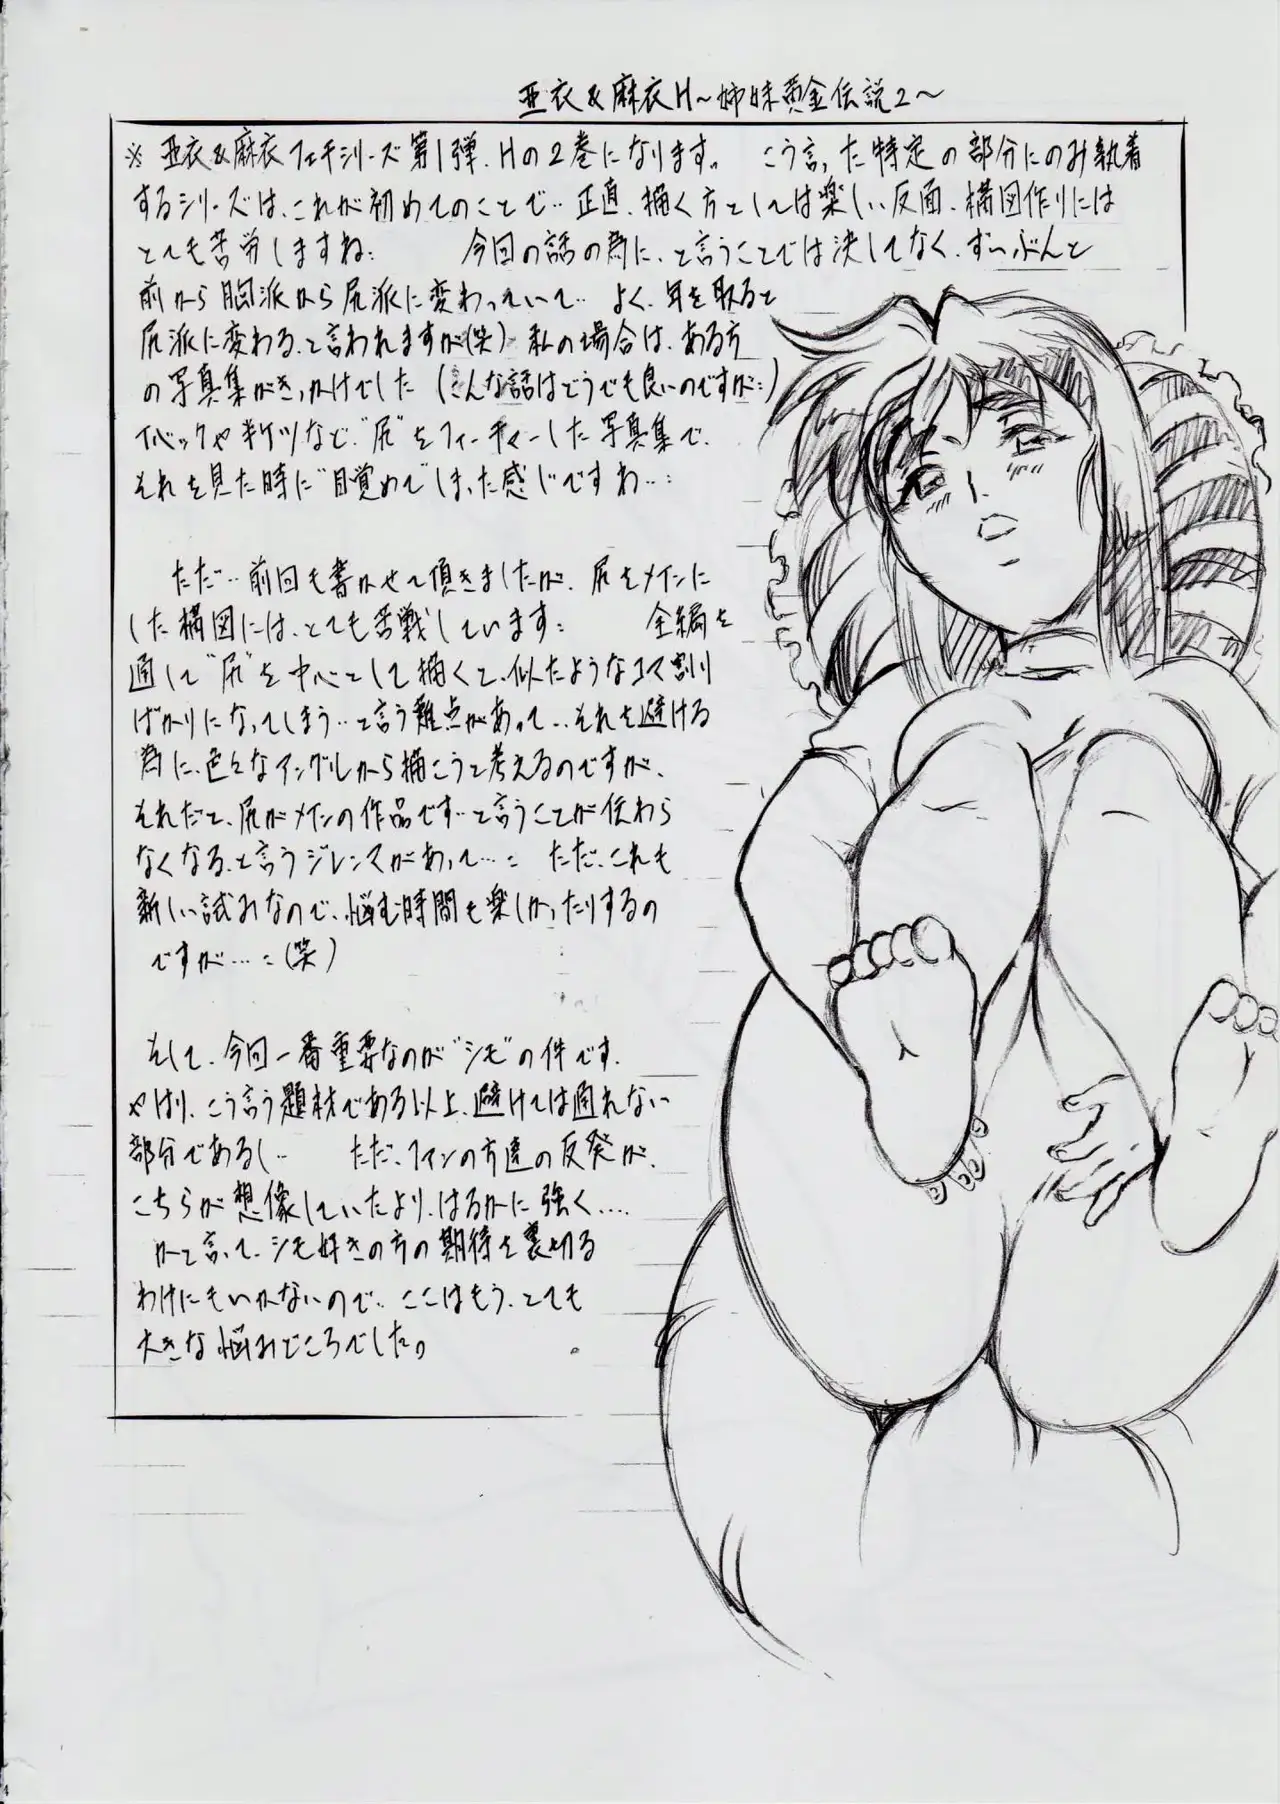 亜衣&麻衣H～姉妹黄金伝説2～
※亜衣&麻衣フェチシリーズ第1弾、Hの2巻になります。 こう言った特定の部分にのみ執着
するシリーズは、これが初めてのことで‥正直、描く方としては楽しい反面、構図作りには
とても苦労しますね: 今回の話の為に、と言うことでは決してなく、ずいぶんと
前から胸派から尻派に変わっていて‥よく、年を取ると
尻派に変わる、と言われますが(笑) 私の場合は、ある方
の写真集がきっかけでした (こんな話はどうでも良いのですが:)
Tバックや半ケツなど、"尻"をフィーチャーした写真集で、
それを見た時に"目覚めて"しまった感じですね‥:
ただ‥前回も書かせて頂きましたが、尻をメインに
した構図には、とても苦戦しています: 全編を
通して"尻"を中心として描くと、似たようなコマ割り
ばかりになってしまう‥と言う難点があって‥それを避ける
為に、色々なアングルから描こうと考えるのですが、
それだと、尻がメインの作品です‥と言うことが伝わら
なくなる、と言うジレンマがあって…: ただ、これも
新しい試みなので、悩む時間も楽しかったりするの
ですが…:(笑)
そして、今回一番重要なのが"シモ"の件です。
やはり、こう言う題材である以上、避けては通れない
部分であるし‥ ただ、ファンの方達の反発が、
こちらが想像していたより、はるかに強く‥‥
かと言って、シモ好きの方の期待を裏切る
わけにもいかないので、ここはもう、とても
大きな悩みどころでした。